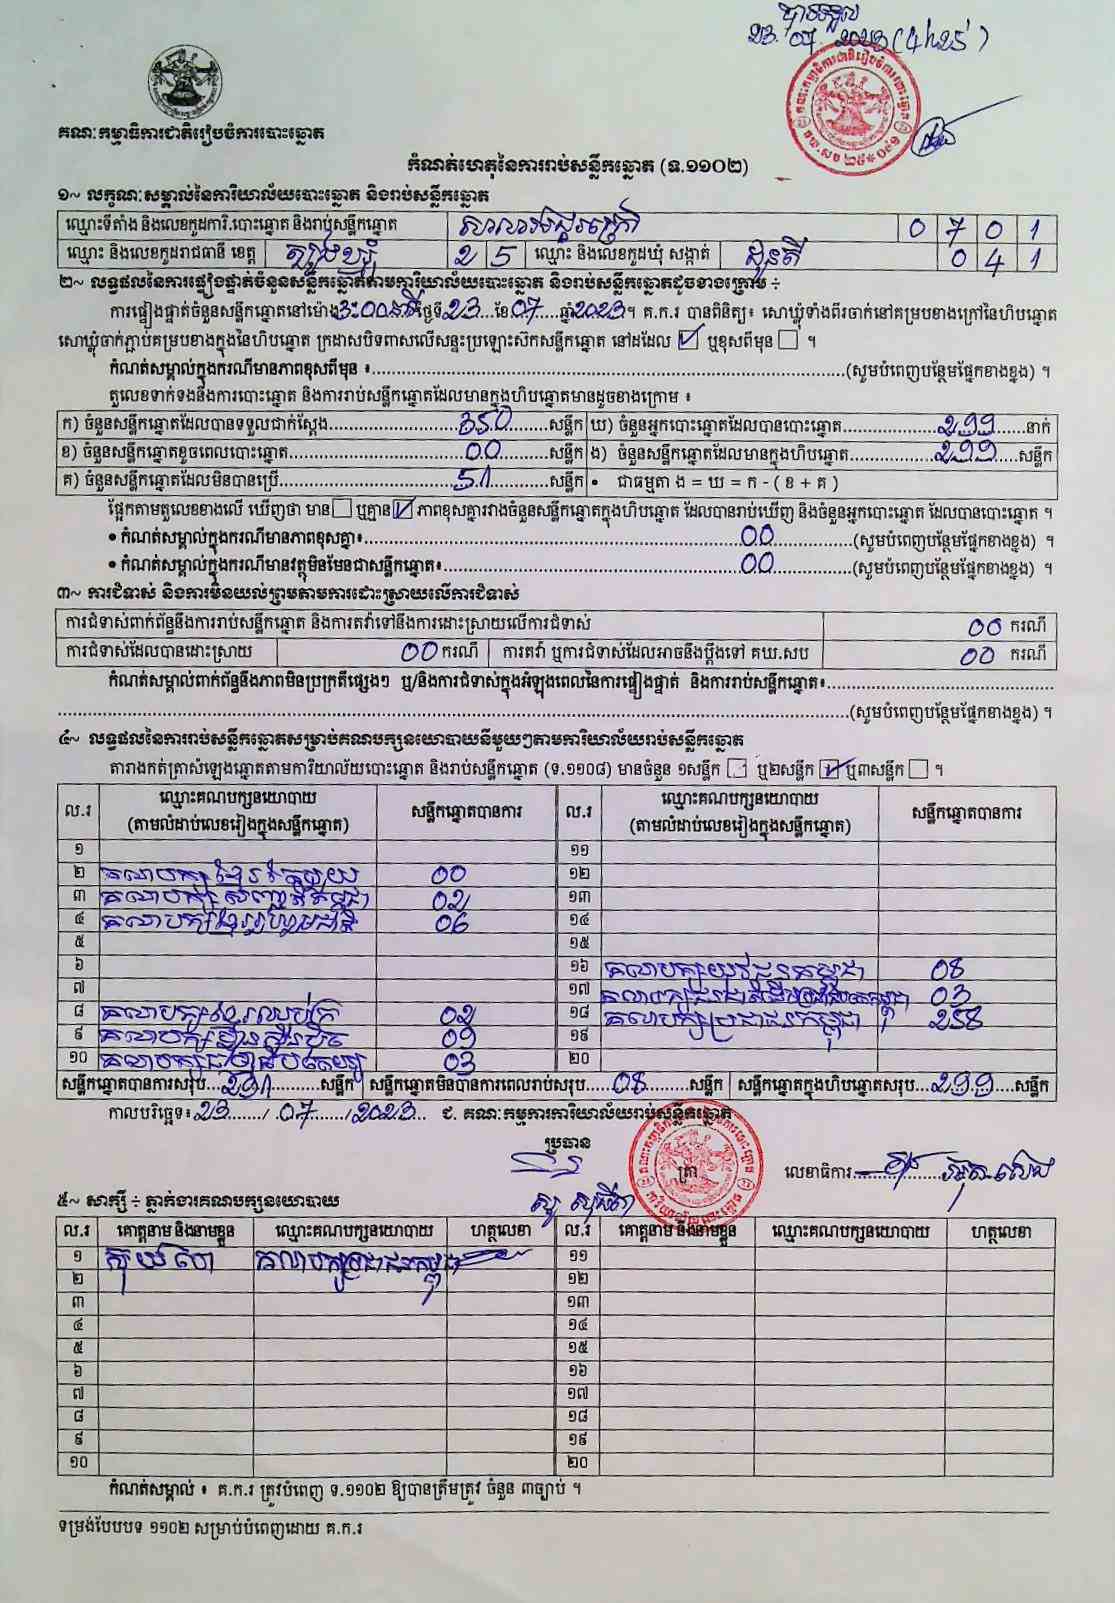 បានទទួល
23. 07 2023 (4h25)
គណៈកម្មាធិការជាតិរៀបចំការបោះឆ្នោត
កំណត់ហេតុនៃការរាប់សន្លឹកឆ្នោត (ទ.១១០២)
១~ លក្ខណៈសម្គាល់នៃការិយាល័យបោះឆ្នោត និងរាប់សន្លឹកឆ្នោត
ឈ្មោះទីតាំង និងលេខកូដការិ.បោះឆ្នោត និងរាប់សន្លឹកឆ្នោត 0 7 0 1
ឈ្មោះ និងលេខកូដរាជធានី ខេត្ត ត្បូងឃ្មុំ 2 5 ឈ្មោះ និងលេខកូដឃុំ សង្កាត់ ដូនតី 0 4 1
២~ លទ្ធផលនៃការផ្ទៀងផ្ទាត់ចំនួនសន្លឹកឆ្នោតតាមការិយាល័យបោះឆ្នោត និងរាប់សន្លឹកឆ្នោតដូចខាងក្រោម ÷
ការផ្ទៀងផ្ទាត់ចំនួនសន្លឹកឆ្នោតនៅម៉ោង 3:00 នាទី ថ្ងៃទី 23 ខែ 07 ឆ្នាំ 2023 ។ គ.ក.រ បានពិនិត្យ៖ សោឃ្លុំទាំងពីរចាក់នៅគម្របខាងក្រៅនៃហិបឆ្នោត
សោឃ្លុំចាក់ភ្ជាប់គម្របខាងក្នុងនៃហិបឆ្នោត ក្រដាសបិទពាសលើសន្ទះប្រឡោះស៊កសន្លឹកឆ្នោត នៅដដែល ☑ ឬខុសពីមុន ☐ ។
កំណត់សម្គាល់ក្នុងករណីមានភាពខុសពីមុន ៖ (សូមបំពេញបន្ថែមផ្នែកខាងខ្នង) ។
តួលេខទាក់ទងនឹងការបោះឆ្នោត និងការរាប់សន្លឹកឆ្នោតដែលមានក្នុងហិបឆ្នោតមានដូចខាងក្រោម ៖
ក) ចំនួនសន្លឹកឆ្នោតដែលបានទទួលជាក់ស្តែង 350 សន្លឹក ឃ) ចំនួនអ្នកបោះឆ្នោតដែលបានបោះឆ្នោត 299 នាក់
ខ) ចំនួនសន្លឹកឆ្នោតខូចពេលបោះឆ្នោត 00 សន្លឹក ង) ចំនួនសន្លឹកឆ្នោតដែលមានក្នុងហិបឆ្នោត 299 សន្លឹក
គ) ចំនួនសន្លឹកឆ្នោតដែលមិនបានប្រើ 51 សន្លឹក • ជាធម្មតា ង = ឃ = ក - ( ខ + គ )
ផ្អែកតាមតួលេខខាងលើ ឃើញថា មាន ☐ ឬគ្មាន ☑ ភាពខុសគ្នារវាងចំនួនសន្លឹកឆ្នោតក្នុងហិបឆ្នោត ដែលបានរាប់ឃើញ និងចំនួនអ្នកបោះឆ្នោត ដែលបានបោះឆ្នោត ។
• កំណត់សម្គាល់ក្នុងករណីមានភាពខុសគ្នា៖ 00 (សូមបំពេញបន្ថែមផ្នែកខាងខ្នង) ។
• កំណត់សម្គាល់ក្នុងករណីមានវត្ថុមិនមែនជាសន្លឹកឆ្នោត៖ 00 (សូមបំពេញបន្ថែមផ្នែកខាងខ្នង) ។
៣~ ការជំទាស់ និងការមិនយល់ព្រមតាមការដោះស្រាយលើការជំទាស់
ការជំទាស់ពាក់ព័ន្ធនឹងការរាប់សន្លឹកឆ្នោត និងការតវ៉ាទៅនឹងការដោះស្រាយលើការជំទាស់ 00 ករណី
ការជំទាស់ដែលបានដោះស្រាយ 00 ករណី ការតវ៉ា ឬការជំទាស់ដែលអាចនឹងប្តឹងទៅ គឃ.សប 00 ករណី
កំណត់សម្គាល់ពាក់ព័ន្ធនឹងភាពមិនប្រក្រតីផ្សេងៗ ឬ/និងការជំទាស់ក្នុងអំឡុងពេលនៃការផ្ទៀងផ្ទាត់ និងការរាប់សន្លឹកឆ្នោត៖
(សូមបំពេញបន្ថែមផ្នែកខាងខ្នង) ។
៤~ លទ្ធផលនៃការរាប់សន្លឹកឆ្នោតសម្រាប់គណបក្សនយោបាយនីមួយៗតាមការិយាល័យរាប់សន្លឹកឆ្នោត
តារាងកត់ត្រាសំឡេងឆ្នោតតាមការិយាល័យបោះឆ្នោត និងរាប់សន្លឹកឆ្នោត (ទ.១១០៨) មានចំនួន ១សន្លឹក ☐ ឬ២សន្លឹក ☑ ឬ៣សន្លឹក ☐ ។
ល.រ ឈ្មោះគណបក្សនយោបាយ (តាមលំដាប់លេខរៀងក្នុងសន្លឹកឆ្នោត) សន្លឹកឆ្នោតបានការ ល.រ ឈ្មោះគណបក្សនយោបាយ (តាមលំដាប់លេខរៀងក្នុងសន្លឹកឆ្នោត) សន្លឹកឆ្នោតបានការ
១ ១១
២ គណបក្សខ្មែរតែមួយ 00 ១២
៣ គណបក្ស កម្ពុជា 02 ១៣
៤ គណបក្សខ្មែររួបរួមជាតិ 06 ១៤
៥ ១៥
៦ ១៦ គណបក្សយុវជនកម្ពុជា 08
៧ ១៧ គណបក្ស 03
៨ គណបក្ស 02 ១៨ គណបក្សប្រជាជនកម្ពុជា 258
៩ គណបក្សហ្វ៊ុនស៊ិនប៉ិច 09 ១៩
១០ គណបក្ស 03 ២០
សន្លឹកឆ្នោតបានការសរុប 291 សន្លឹក សន្លឹកឆ្នោតមិនបានការពេលរាប់សរុប 08 សន្លឹក សន្លឹកឆ្នោតក្នុងហិបឆ្នោតសរុប 299 សន្លឹក
កាលបរិច្ឆេទ៖ 23 / 07 / 2023 ជ. គណៈកម្មការការិយាល័យរាប់សន្លឹកឆ្នោត
ប្រធាន
ត្រា លេខាធិការ
៥~ សាក្សី ÷ ភ្នាក់ងារគណបក្សនយោបាយ
ល.រ គោត្តនាម និងនាមខ្លួន ឈ្មោះគណបក្សនយោបាយ ហត្ថលេខា ល.រ គោត្តនាម និងនាមខ្លួន ឈ្មោះគណបក្សនយោបាយ ហត្ថលេខា
១ គណបក្សប្រជាជនកម្ពុជា ១១
២ ១២
៣ ១៣
៤ ១៤
៥ ១៥
៦ ១៦
៧ ១៧
៨ ១៨
៩ ១៩
១០ ២០
កំណត់សម្គាល់ ៖ គ.ក.រ ត្រូវបំពេញ ទ.១១០២ ឱ្យបានត្រឹមត្រូវ ចំនួន ៣ច្បាប់ ។
ទម្រង់បែបបទ ១១០២ សម្រាប់បំពេញដោយ គ.ក.រ